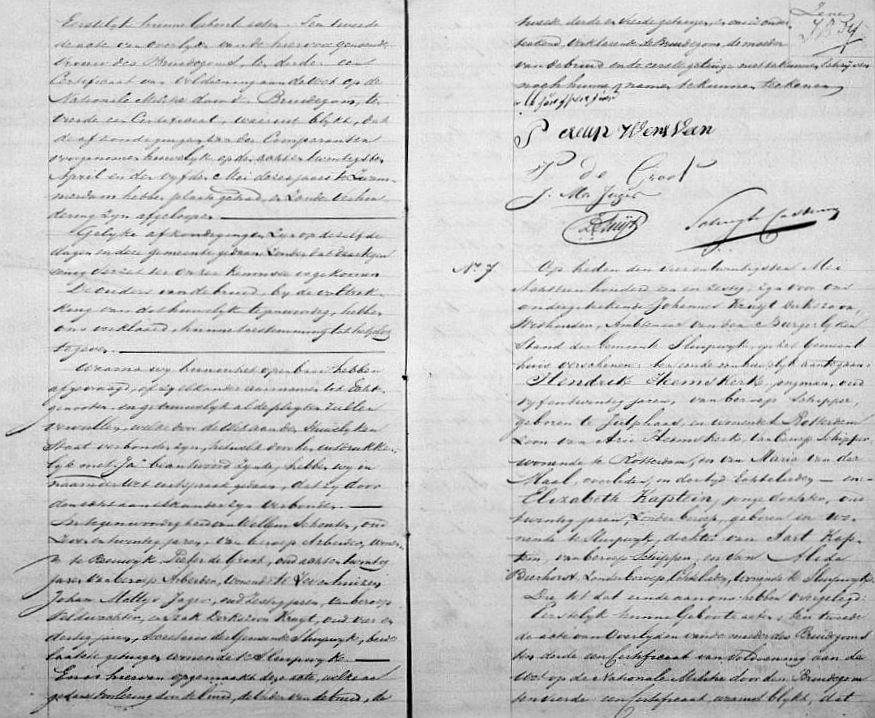 Eerstelyk hunne Geboorte acten. Ten tweede
de acte van overlyden van de hiervoor genoemde
vrouw des Bruidegoms, ten derden een
Certificaat van voldoening aan de Wet op de
Nationale Militie door den Bruidegom, ten
vierde een Certificaat, waaruit blykt, dat
de afkondigingen van der Comparanten
voorgenomen huwelyk op den achtentwintigsten
April en den vyfden Mei dezes jaars te Zwam-
merdam hebben plaats gehad, en zonder verhin
dering zyn afgeloopen
Gelyke afkondigingen zyn op dezelfde
dagen in deze gemeente gedaan zonder dat daartegen
eenig verzet ter onzer kennisse is gekomen
De ouders van de bruid, by de voltrek-
king van dit huwelyk tegenwoordig, hebben
ons verklaard, hunne toestemming tot hetzelve
te geven.
Waarna wy hennen het openbaar hebben
afgevraagd, of zy elkander aannemen tot Echt-
genooten, en getrouwelyk al de plegten zullen
vervullen, welke door de Wet aan den Huwelyken
Staat verbonden zyn, hetwelk door hen uitdrukke-
lyk met "Ja" beantwoord zynde, hebben wy in
naam der Wet uitspraak gedaan, dat zy door
den echt aan elkander zyn verbonden.
In tegenwoordigheid van Willem Schouten, oud
twintig jaren, van beroep Arbeider, wonen-
de te Reeuwyk, Pieter de Groot, oud achtentwintig
jaren van beroep Arbeider, wonende te Zevenhuizen
Johan Jager, oud zestig jaren, van beroep
Veldwachter, en Kruyt, oud vier en
dertig jaren, Secretaris der Gemeente Sluipwyk, beide
laatste getuigen wonende te Sluipwyk
En is hiervan opgemaakt deze acte, welke na
gedane voorlezing door de bruid, de vader van de bruid, de
tweede derde en vierde getuigen, en ons is onder
teekend, verklarende de Bruidegom, de moeder
van de bruid en de eerste getuige niet te kunnen schryven
noch hunne namen te kunnen teekenen
P de Groot
J. Jager
No 7.
Op heden den vier en twintigsten Mei
Achttienhonderd een en zestig, zyn voor ons
ondergeteekende Johannes Kruyt Dirkszoon,
Wethouder, Ambtenaar van den Burgerlyken
Stand der Gemeente Sluipwyk, in het Gemeente
huis verschenen: ten einde een huwelyk aantegaan:
Hendrik Heemskerk, jongman, oud
vyfentwintig jaren, van beroep Schipper,
geboren te Jutphaas, en wonende te Rotterdam
Zoon van Arie Heemskerk, van beroep Schipper
wonende te Rotterdam, en van Maria van der
Maal, overleden, in der tyd Echtelieden en
Elizabeth Kaptein, jonge dochter, oud
twintig jaren, zonder beroep, geboren en wo-
nende te Sluipwyk, dochter van Aart Kap-
tein, van beroep Schipper, en van Alida
Beerhorst, zonder beroep Echtelieden, wonende te Sluipwyk.
Die tot dat einde aan ons hebben overgelegd:
Eerstelyk hunne Geboorte acten; ten tweede
de acte van Overlyden van de moeder des Bruidegoms
ten derde een Certificaat van voldoening aan de
Wet op de Nationale Militie door den Bruidegom
ten vierde een Certificaat, waaruit blykt, dat